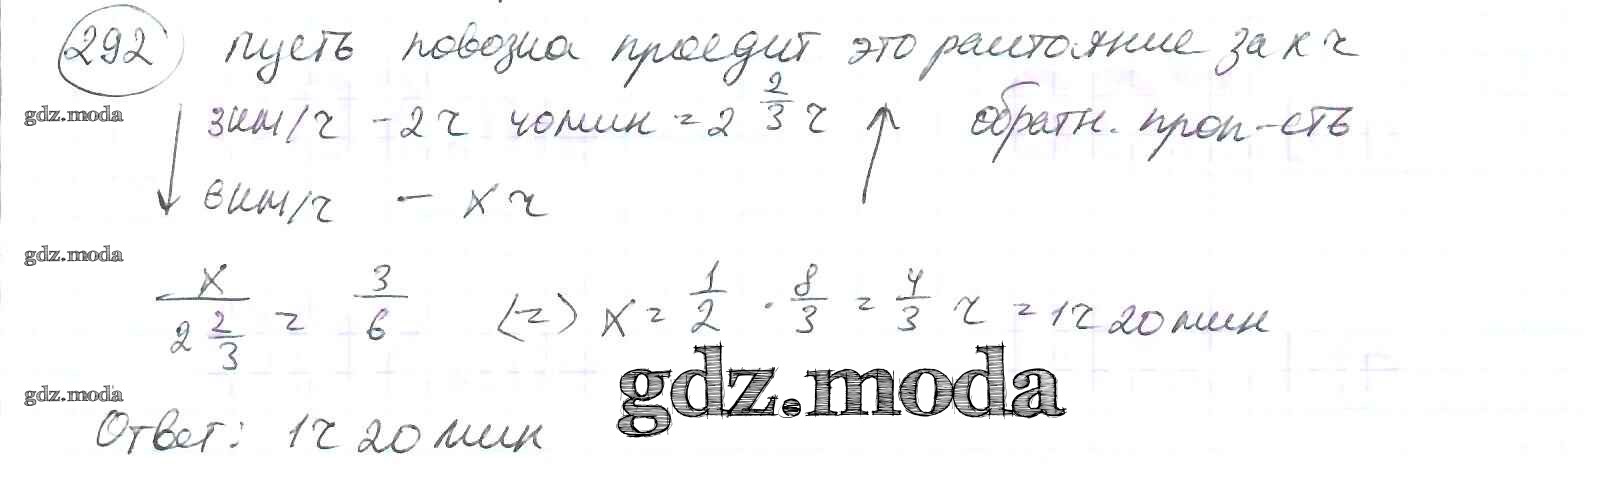 292 пусть повозка проедит это расстояние за x ч
gdz.moda 3км/ч - 2ч 40мин = 2 2/3 ч обратн. проп-сть
6км/ч - x ч
gdz.moda
x / 2 2/3 = 3/6 <=> x = 1/2 · 8/3 = 4/3 ч = 1ч 20мин
gdz.moda
gdz.moda
Ответ: 1ч 20мин